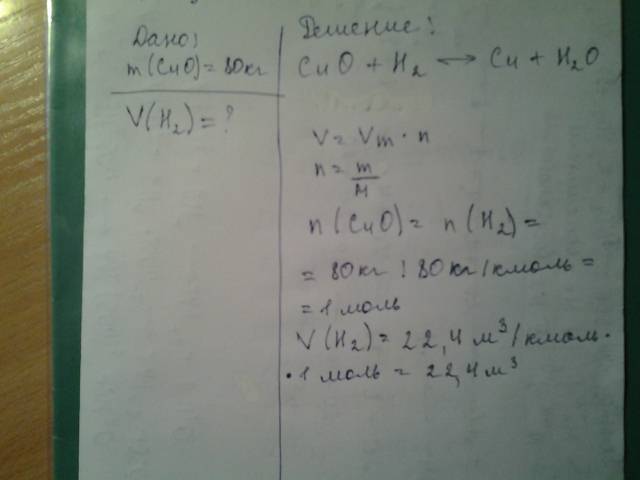 Дано:
m(CuO) = 80кг
V(H₂) = ?
Решение:
CuO + H₂ ↔ Cu + H₂O
V = Vm · n
n = m/M
n(CuO) = n(H₂) =
= 80кг : 80кг/кмоль =
= 1 моль
V(H₂) = 22,4 м³/кмоль ·
· 1 моль = 22,4м³